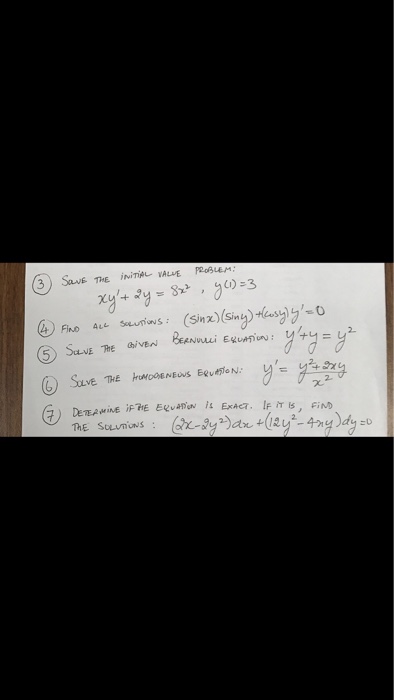 ③ SOLVE THE INITIAL VALUE PROBLEM:
xy' + 2y = 8x², y(1) = 3
④ FIND ALL SOLUTIONS: (sinx)(siny)+(cosy)y'=0
⑤ SOLVE THE GIVEN BERNOULLI EQUATION: y'+y=y²
⑥ SOLVE THE HOMOGENEOUS EQUATION: y' = (y²+2xy)/x²
⑦ DETERMINE IF THE EQUATION IS EXACT. IF IT IS, FIND
THE SOLUTIONS: (2x-2y²)dx+(12y²-4xy)dy=0